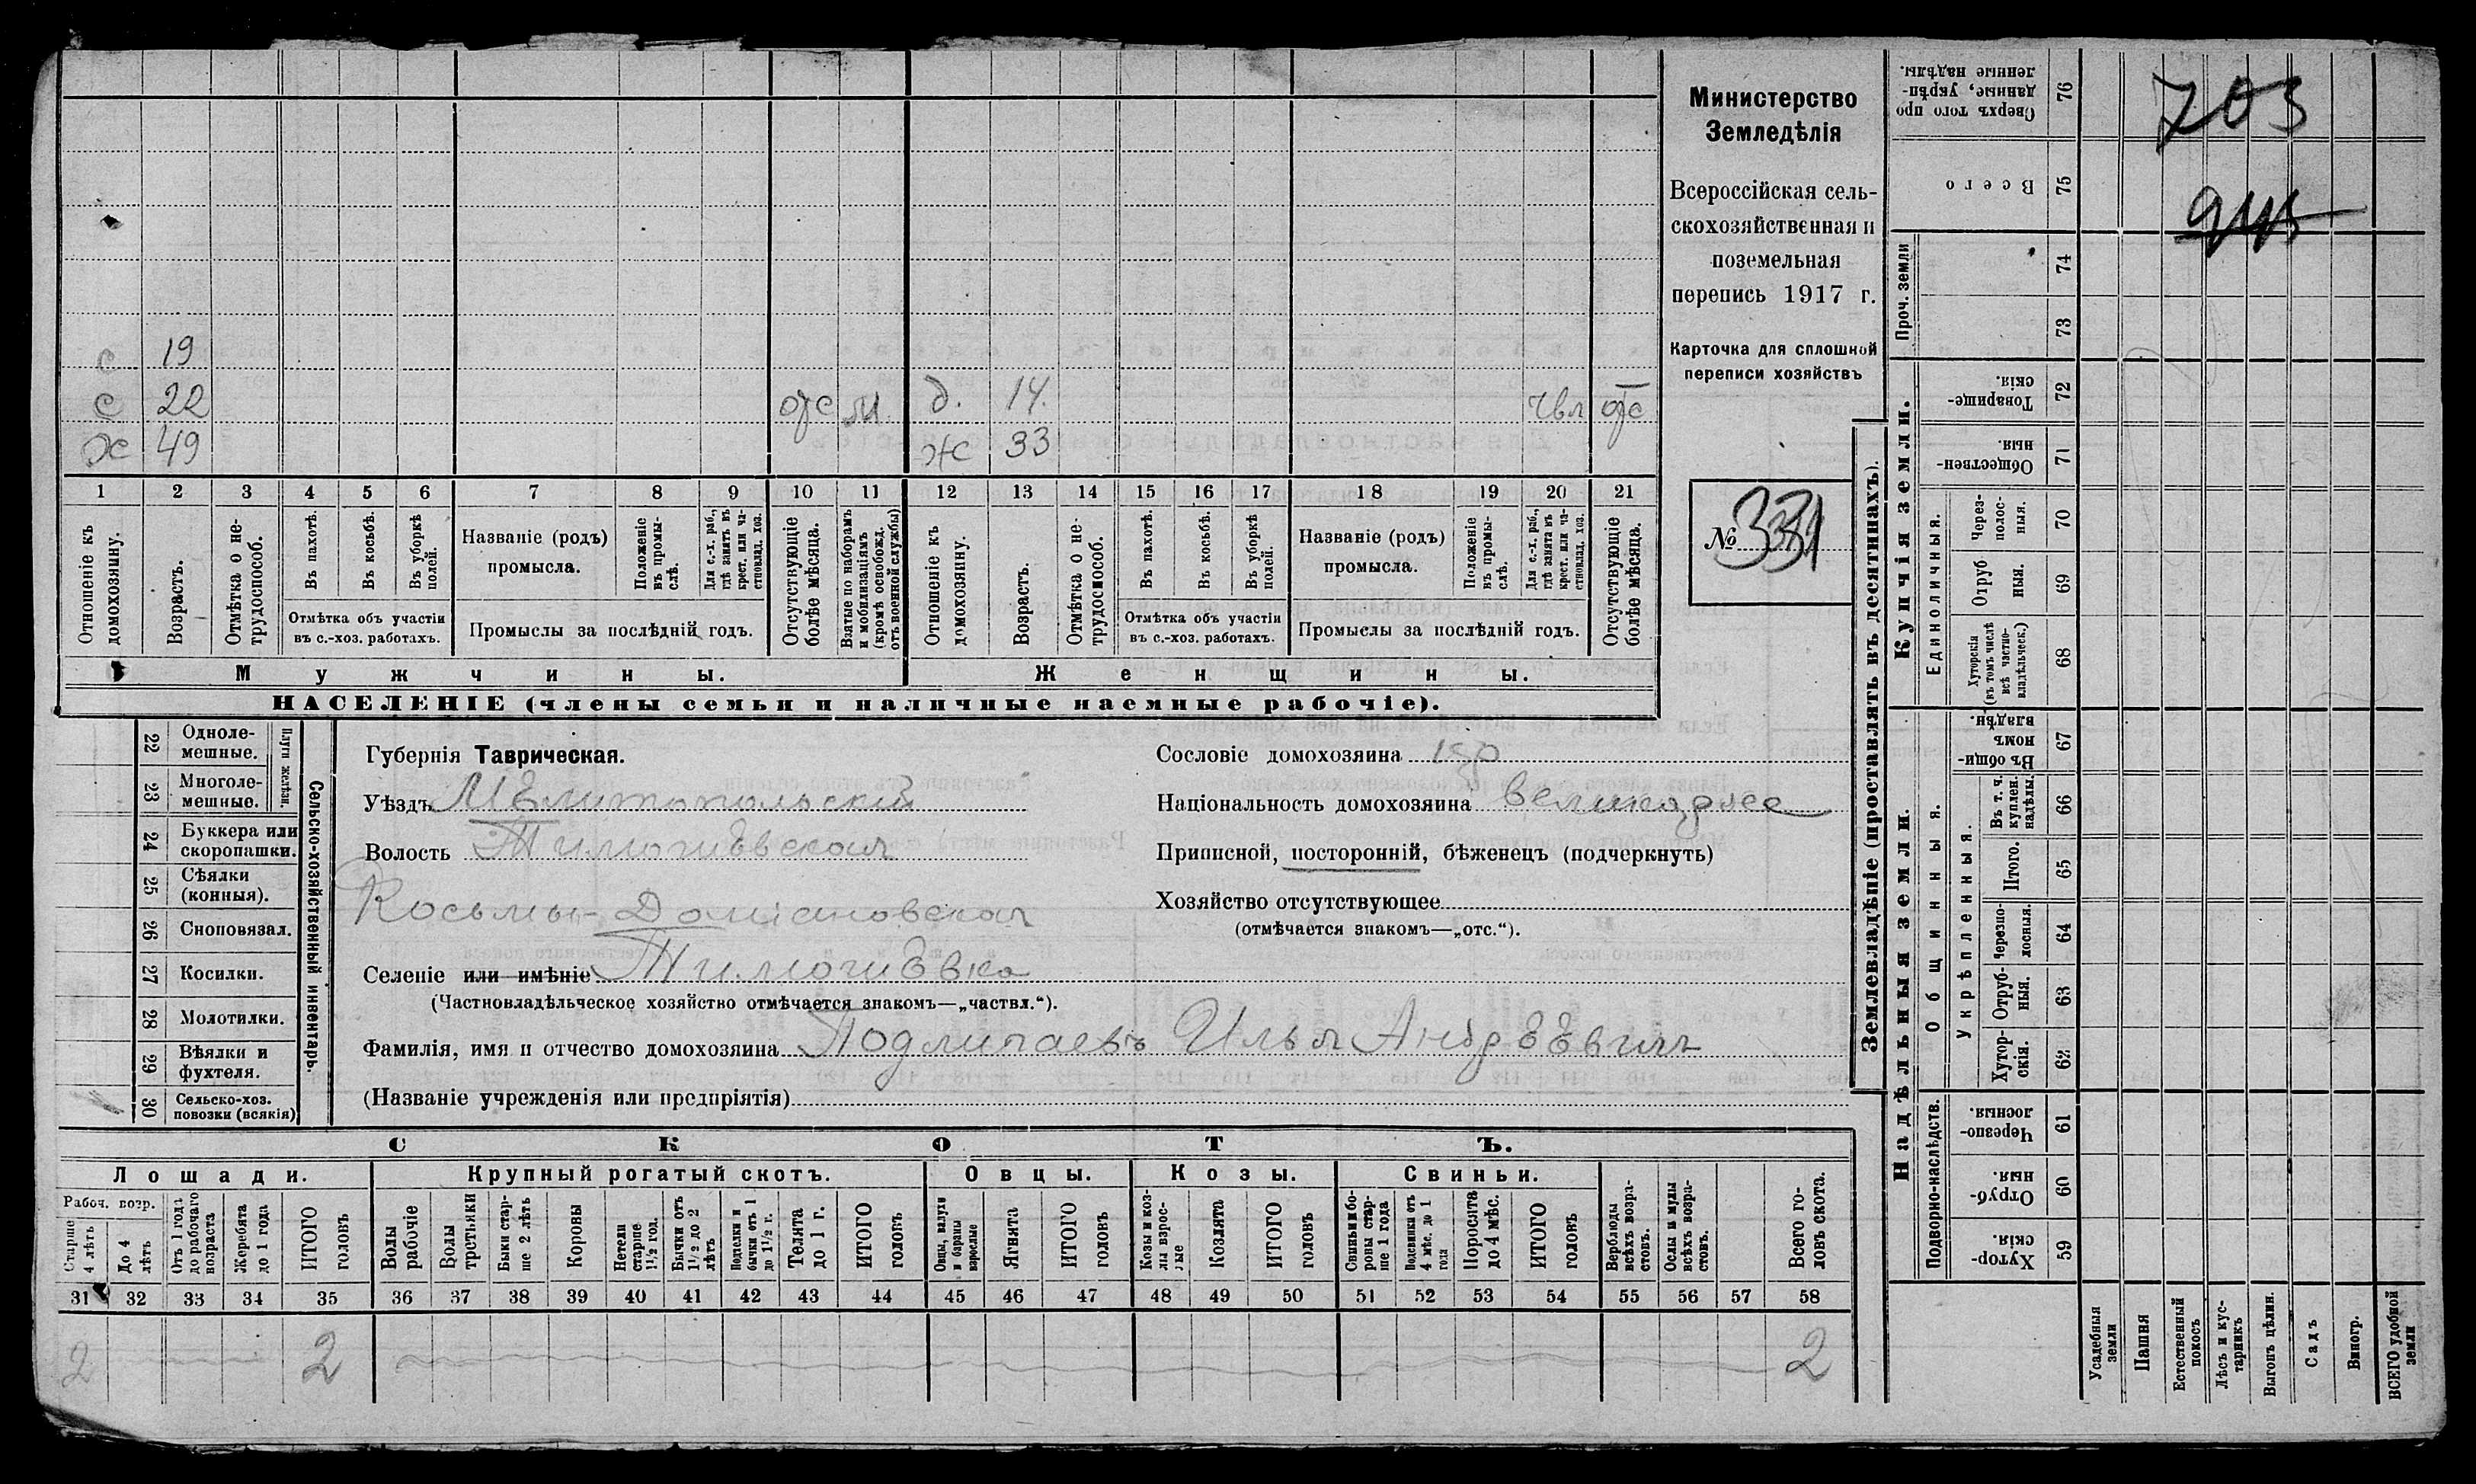 с 19
с 22 отс М. д. 14. чвл отс
ж 49 ж 33
1 2 3 4 5 6 7 8 9 10 11 12 13 14 15 16 17 18 19 20 21
Отношеніе къ домохозяину.
Возрастъ.
Отмѣтка о нетрудоспособ.
Въ пахотѣ.
Въ косьбѣ.
Въ уборкѣ полей.
Отмѣтка объ участіи въ с.-хоз. работахъ.
Названіе (родъ) промысла.
Положеніе въ промыслѣ.
Для с.-х. раб., гдѣ занятъ въ крест. или частновлад. хоз.
Промыслы за послѣдній годъ.
Отсутствующіе болѣе мѣсяца.
Взятые по наборамъ и мобилизаціямъ (кромѣ освобожд. отъ военной службы)
Отношеніе къ домохозяину.
Возрастъ.
Отмѣтка о нетрудоспособ.
Въ пахотѣ.
Въ косьбѣ.
Въ уборкѣ полей.
Отмѣтка объ участіи въ с.-хоз. работахъ.
Названіе (родъ) промысла.
Положеніе въ промыслѣ.
Для с.-х. раб., гдѣ занята въ крест. или частновлад. хоз.
Промыслы за послѣдній годъ.
Отсутствующіе болѣе мѣсяца.
Мужчины. Женщины.
НАСЕЛЕНІЕ (члены семьи и наличные наемные рабочіе).
Министерство
Земледѣлія
Всероссійская сель-
скохозяйственная и
поземельная
перепись 1917 г.
Карточка для сплошной
переписи хозяйствъ
№ 331
Губернія Таврическая.
Уѣздъ Мелитопольскій
Волость Тимошѣвская
Косьмы-Доміановская
Селеніе или имѣніе Тимошѣвка
(Частновладѣльческое хозяйство отмѣчается знакомъ—„частвл.“).
Фамилія, имя и отчество домохозяина Подлипаевъ Илья Андрѣѣвич
(Названіе учрежденія или предпріятія)
Сословіе домохозяина кр
Національность домохозяина великорусс
Приписной, посторонній, бѣженецъ (подчеркнуть)
Хозяйство отсутствующее
(отмѣчается знакомъ—„отс.“).
Сельско-хозяйственный инвентарь.
Плуги желѣзн.
22 Однолемешные.
23 Многолемешные.
24 Буккера или скоропашки.
25 Сѣялки (конныя).
26 Сноповязал.
27 Косилки.
28 Молотилки.
29 Вѣялки и фухтеля.
30 Сельско-хоз. повозки (всякія)
СКОТЪ.
Лошади. Крупный рогатый скотъ. Овцы. Козы. Свиньи.
Рабоч. возр.
Старше 4 лѣтъ
До 4 лѣтъ
Отъ 1 года до рабочаго возраста
Жеребята до 1 года
ИТОГО головъ
Волы рабочіе
Волы третьяки
Быки старше 2 лѣтъ
Коровы
Нетели старше 1½ год.
Бычки отъ 1½ до 2 лѣтъ
Подтелки и бычки отъ 1 до 1½ г.
Телята до 1 г.
ИТОГО головъ
Овцы, валухи и бараны взрослые
Ягнята
ИТОГО головъ
Козы и козлы взрослые
Козлята
ИТОГО головъ
Свиньи и боровы старше 1 года
Подсвинки отъ 4 мѣс. до 1 года
Поросята до 4 мѣс.
ИТОГО головъ
Верблюды всѣхъ возрастовъ.
Ослы и мулы всѣхъ возрастовъ.
Всего головъ скота.
31 32 33 34 35 36 37 38 39 40 41 42 43 44 45 46 47 48 49 50 51 52 53 54 55 56 57 58
2 2 2
Землевладѣніе (проставлять въ десятинахъ).
Купчія земли.
Надѣльныя земли.
Проч. земли
Единоличныя.
Общинныя.
Укрѣпленныя.
Подворно-наслѣдств.
76 Сверхъ того проданные, укрѣпленные надѣлы.
75 Всего
74
73
72 Товарищескія.
71 Общественныя.
70 Черезполосныя.
69 Отрубныя.
68 Хуторскія (въ томъ числѣ всѣ частновладѣльческ.)
67 Въ общинномъ владѣн.
66 Въ т. ч. куплен. надѣлы.
65 Итого.
64 Черезполосныя.
63 Отрубныя.
62 Хуторскія.
61 Черезполосныя.
60 Отрубныя.
59 Хуторскія.
Усадебныя земли
Пашня
Естественный покосъ
Лѣсъ и кустарникъ
Выгонъ цѣлин.
Садъ
Виногр.
ВСЕГО удобной земли
703